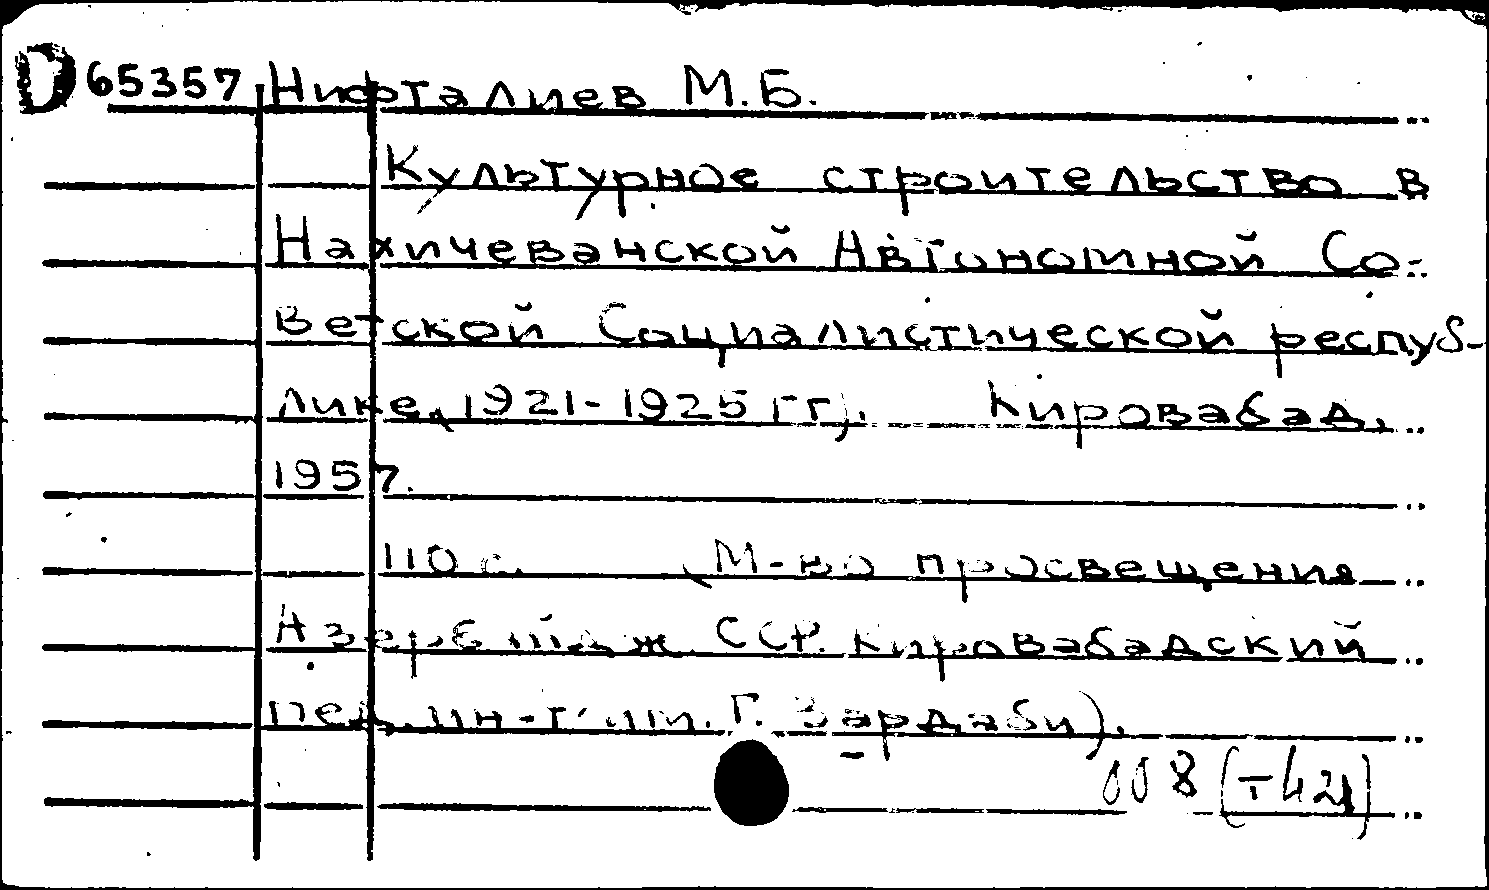 D 65357 Нифталиев М.Б.
Культурное строительство в
Нахичеванской Автономной Со-
ветской Социалистической респуб-
лике, (1921-1925 гг). Кировабад,
1957.
110 с. (М-во просвещения
Азербайдж. ССР. Кировабадский
пед. ин-т им. Г. Зардаби).
008 (-421)